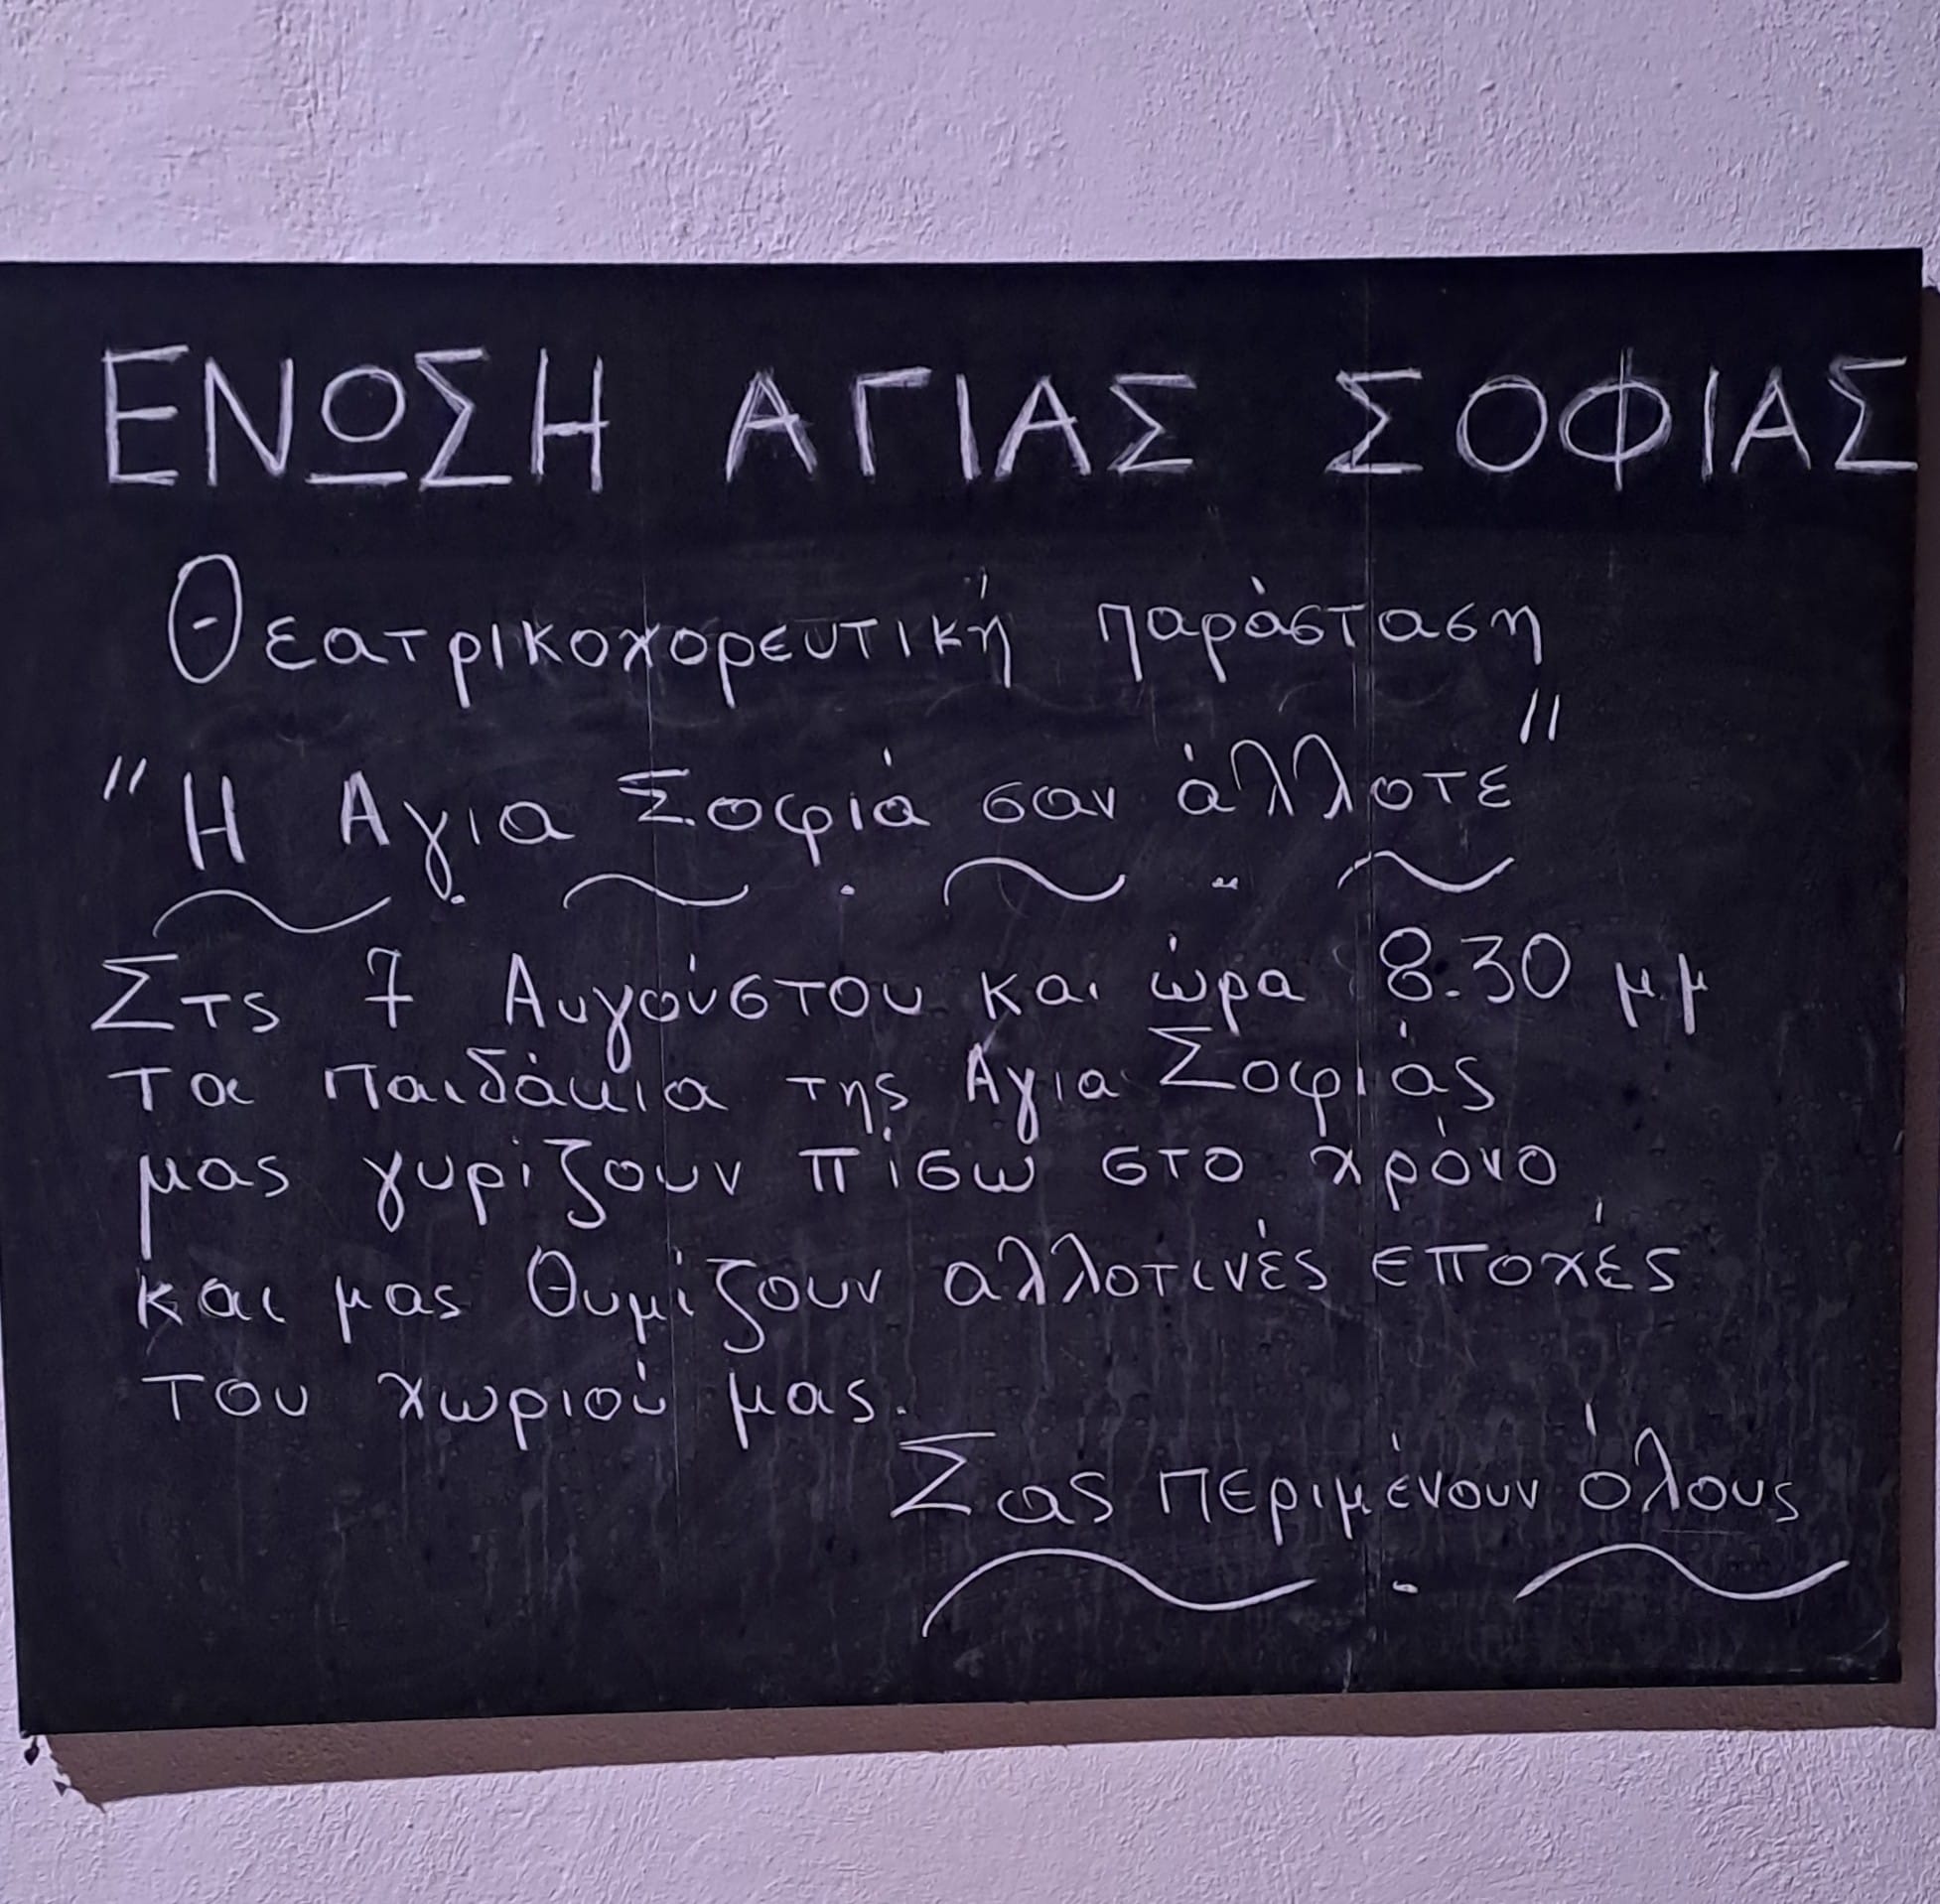 ΕΝΩΣΗ ΑΓΙΑΣ ΣΟΦΙΑΣ
Θεατρικοχορευτική παράσταση
"Η Αγια Σοφιά σαν άλλοτε"
Στς 7 Αυγούστου και ώρα 8.30 μμ
τα παιδάκια της Άγια Σοφιάς
μας γυρίζουν πίσω στο χρόνο
και μας θυμίζουν αλλοτινές εποχές
του χωριού μας.
Σας περιμένουν όλους